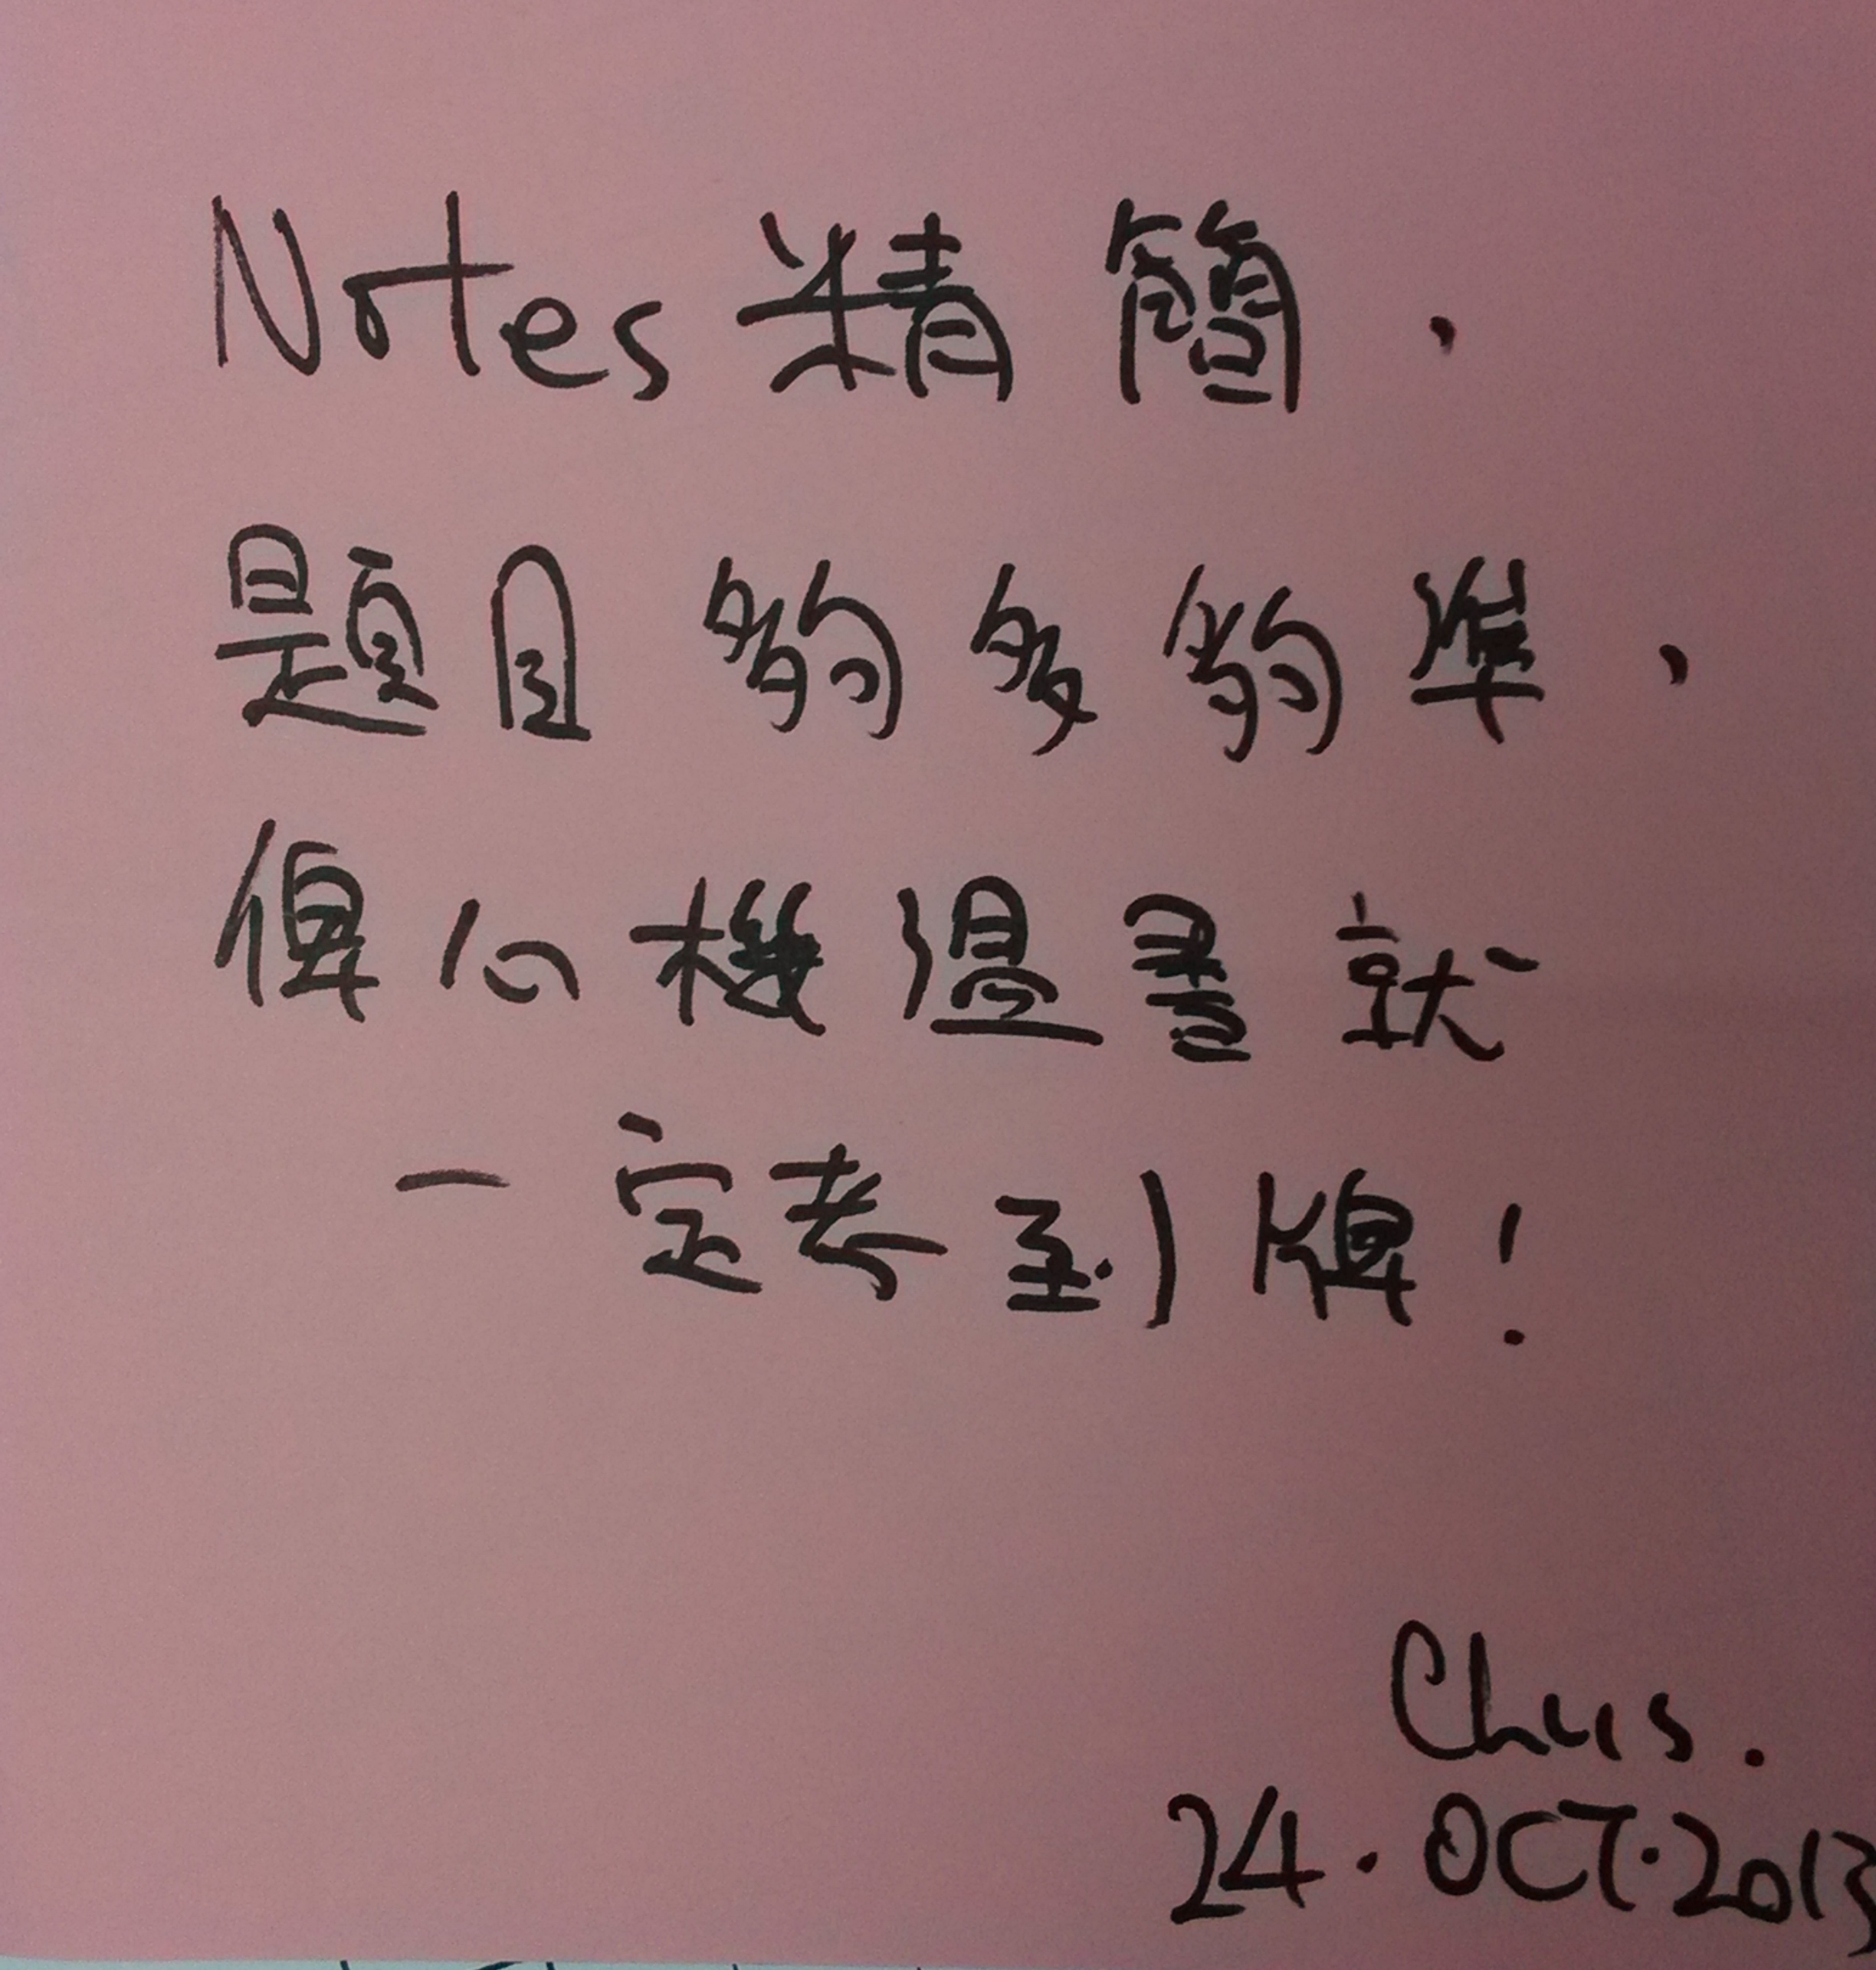 Notes 精簡，
題目夠多夠準，
俾心機溫書就
一定考到牌！
Chris.
24. OCT. 2013